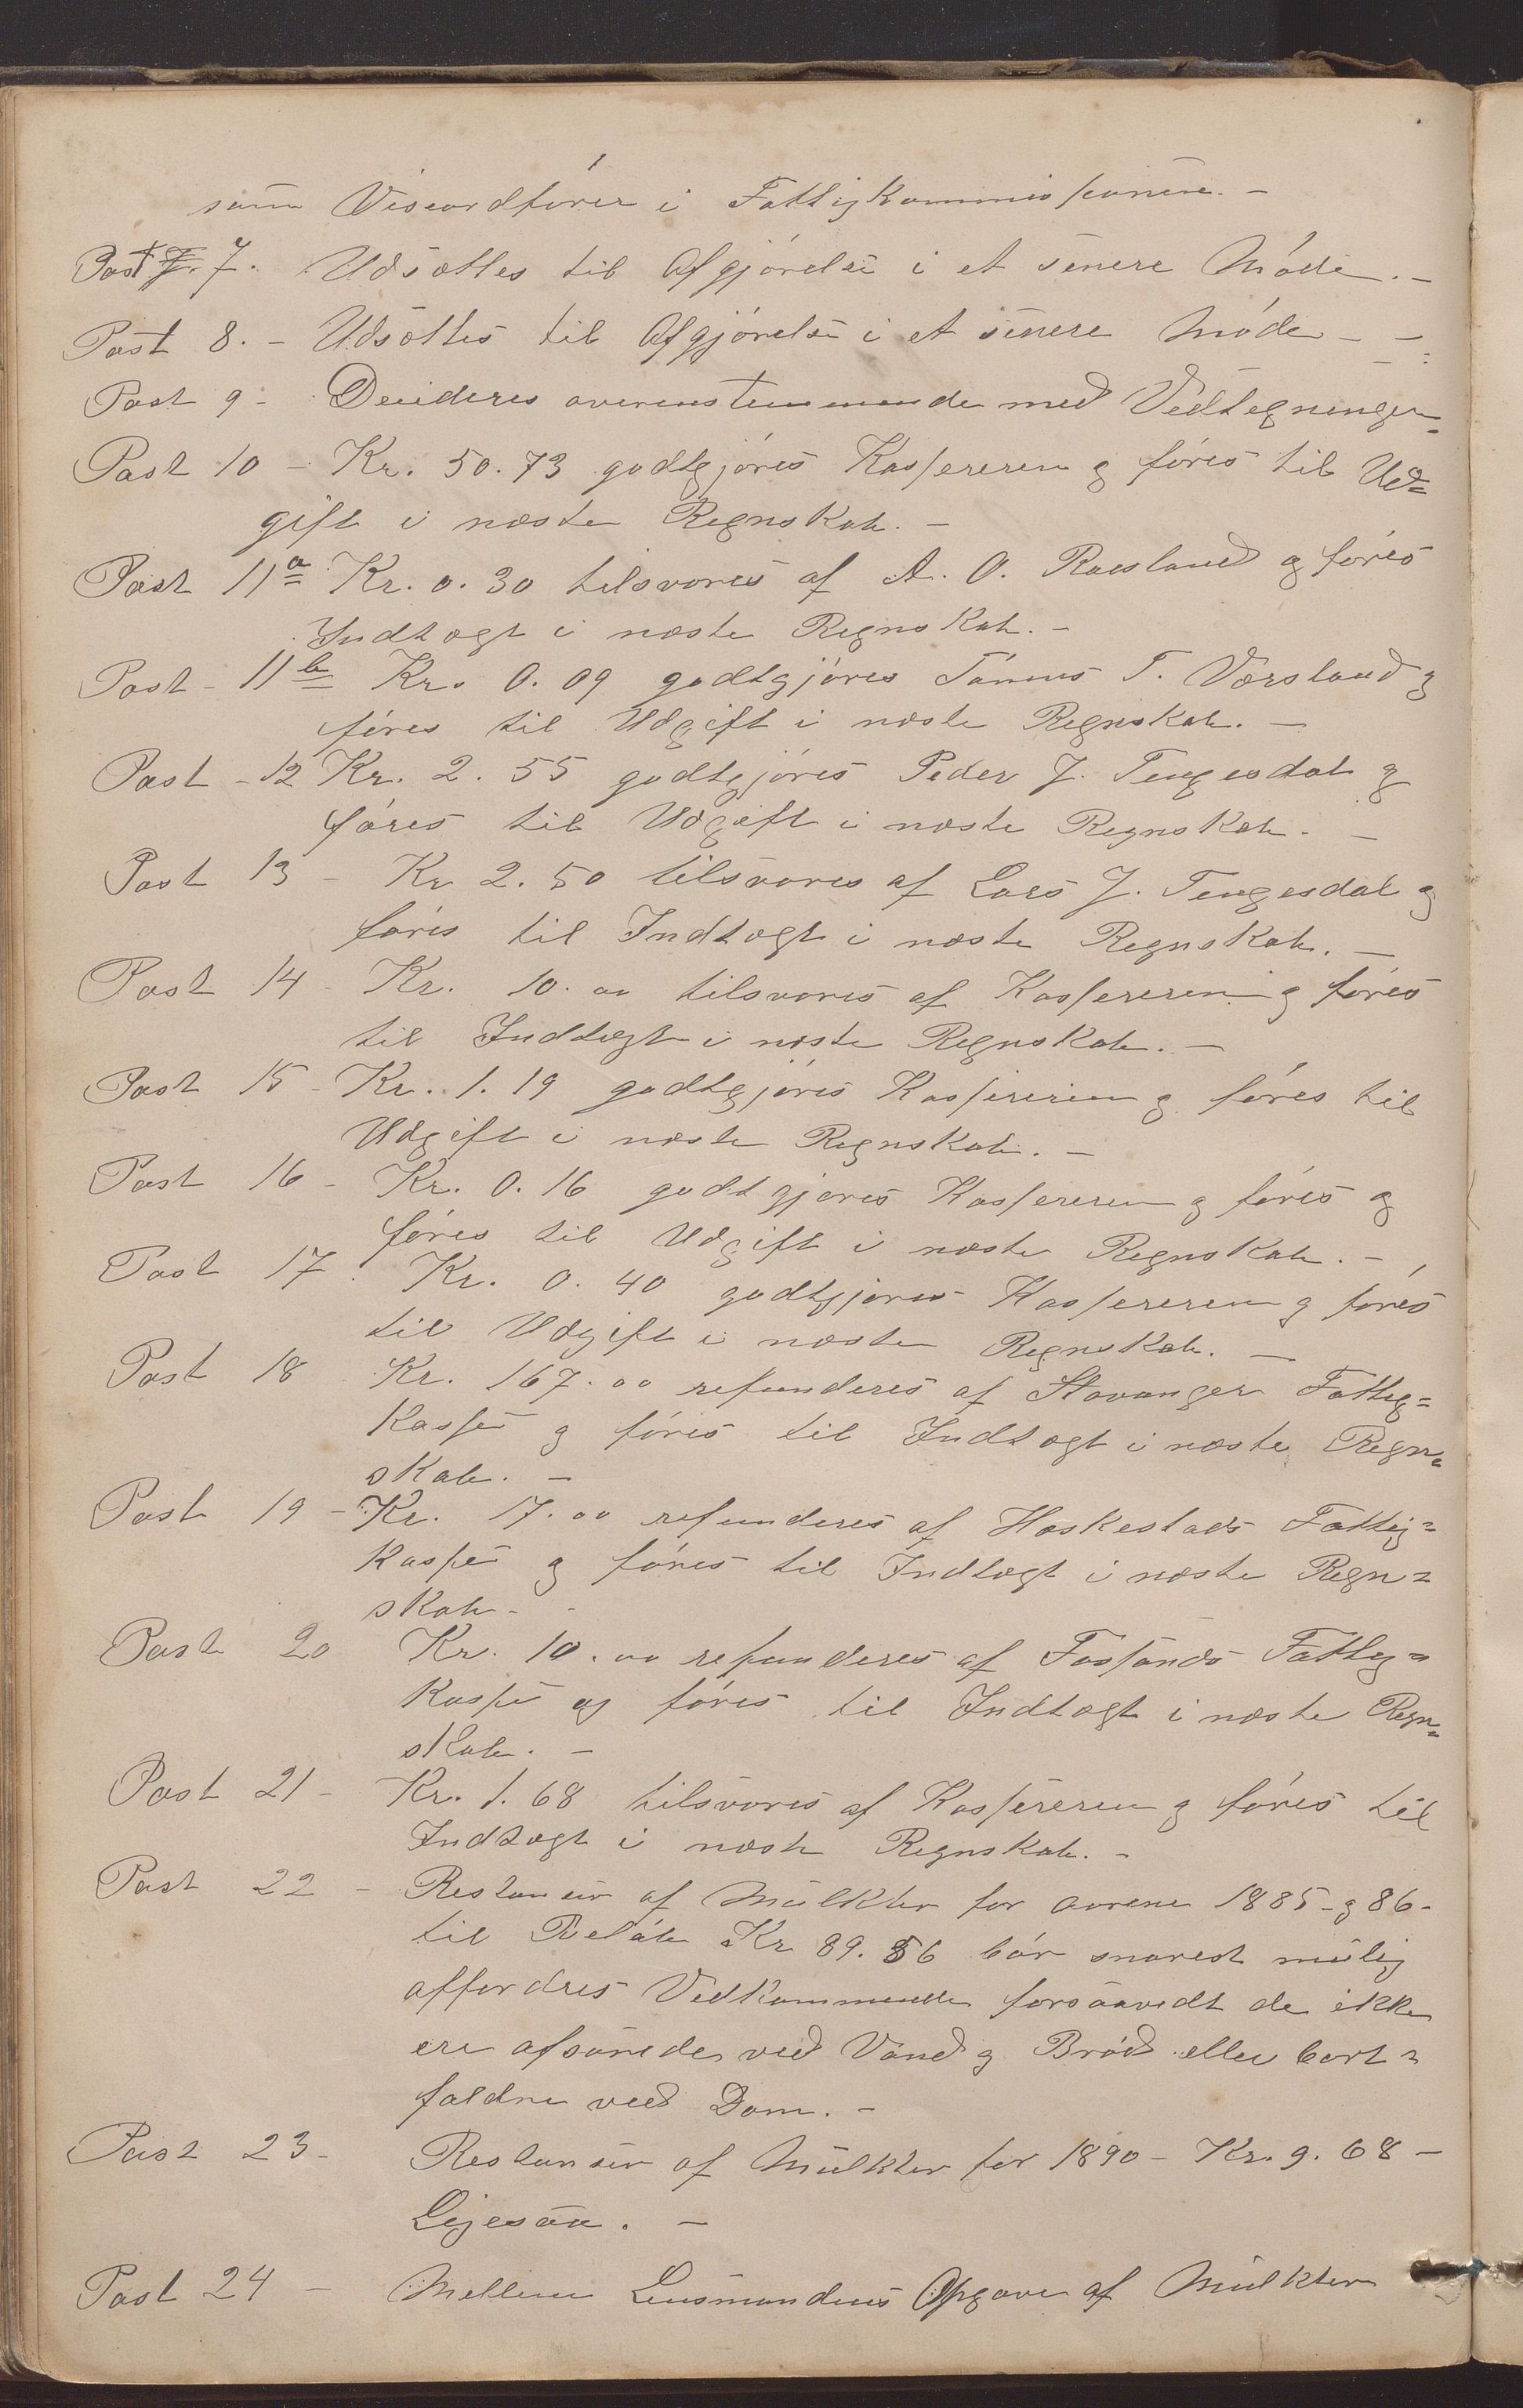 som Viseordfører i Fattigkommissionen. –
Post 7. Udsættes til Afgjørelse i et senere Møde. –
Post 8. – Udsættes til Afgjørelse i et senere Møde – –
Post 9 – Decideres overenstemmende med Vedtegningen
Post 10 – Kr. 50.73 godtgjøres Kassereren og føres til Ud=
gift i næste Regnskab. –
Post 11a Kr. 0.30 tilsvares af A. O. Roesland og føres
Indtægt i næste Regnskab. –
Post – 11b Kr. 0.09 godtgjøres Tønnes T. Værsland og
føres til Udgift i næste Regnskab. –
Post – 12 Kr. 2.55 godtgjøres Peder J. Tengesdal og
føres til Udgift i næste Regnskab. –
Post 13 – Kr 2.50 tilsvares af Lars J. Tengesdal og
føres til Indtægt i næste Regnskab. –
Post 14 – Kr. 10.00 tilsvares af Kassereren og føres
til Indtægt i næste Regnskab. –
Post 15 – Kr. 1.19 godtgjøres Kassereren og føres til
Udgift i næste Regnskab. –
Post 16 – Kr. 0.16 godtgjøres Kassereren og føres og
føres til Udgift i næste Regnskab. –
Post 17. Kr. 0.40 godtgjøres Kassereren og føres
til Udgift i næste Regnskab. –
Post 18 Kr. 167.00 refunderes af Stavanger Fattig=
kasse og føres til Indtægt i næste Regn=
skab. –
Post 19 – Kr. 17.00 refunderes af Haskestads Fattig=
kasse og føres til Indtægt i næste Regn=
skab. –
Post 20 Kr. 10.00 refunderes af Fossands Fattig=
kasse og føres til Indtægt i næste Regn=
skab. –
Post 21 – Kr. 1.68 tilsvares af Kassereren og føres til
Indtægt i næste Regnskab. –
Post 22 – Restanser af Mulkter for Aarene 1885 – og 86 –
til Beløb Kr 89.86 bør snarest mulig
affordres Vedkommende forsaavidt de ikke
ere afsonede ved Vand og Brød eller bort=
faldne ved Dom. –
Post 23 – Restanser af Mulkter for 1890 – Kr. 9.68 –
Ligesaa. –
Post 24 – Mellem Lensmandens Opgave af Mulkter